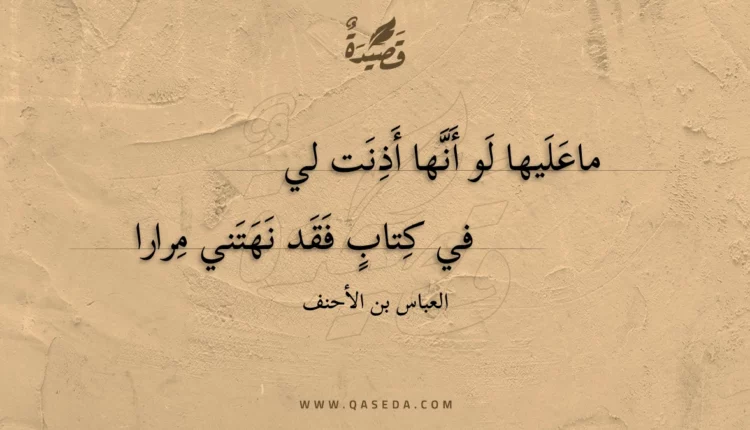 قَصِيدَةٌ
ماعَلَيها لَو أَنَّها أَذِنَت لي
في كِتابٍ فَقَد نَهَتَني مِرارا
العباس بن الأحنف
WWW.QASEDA.COM